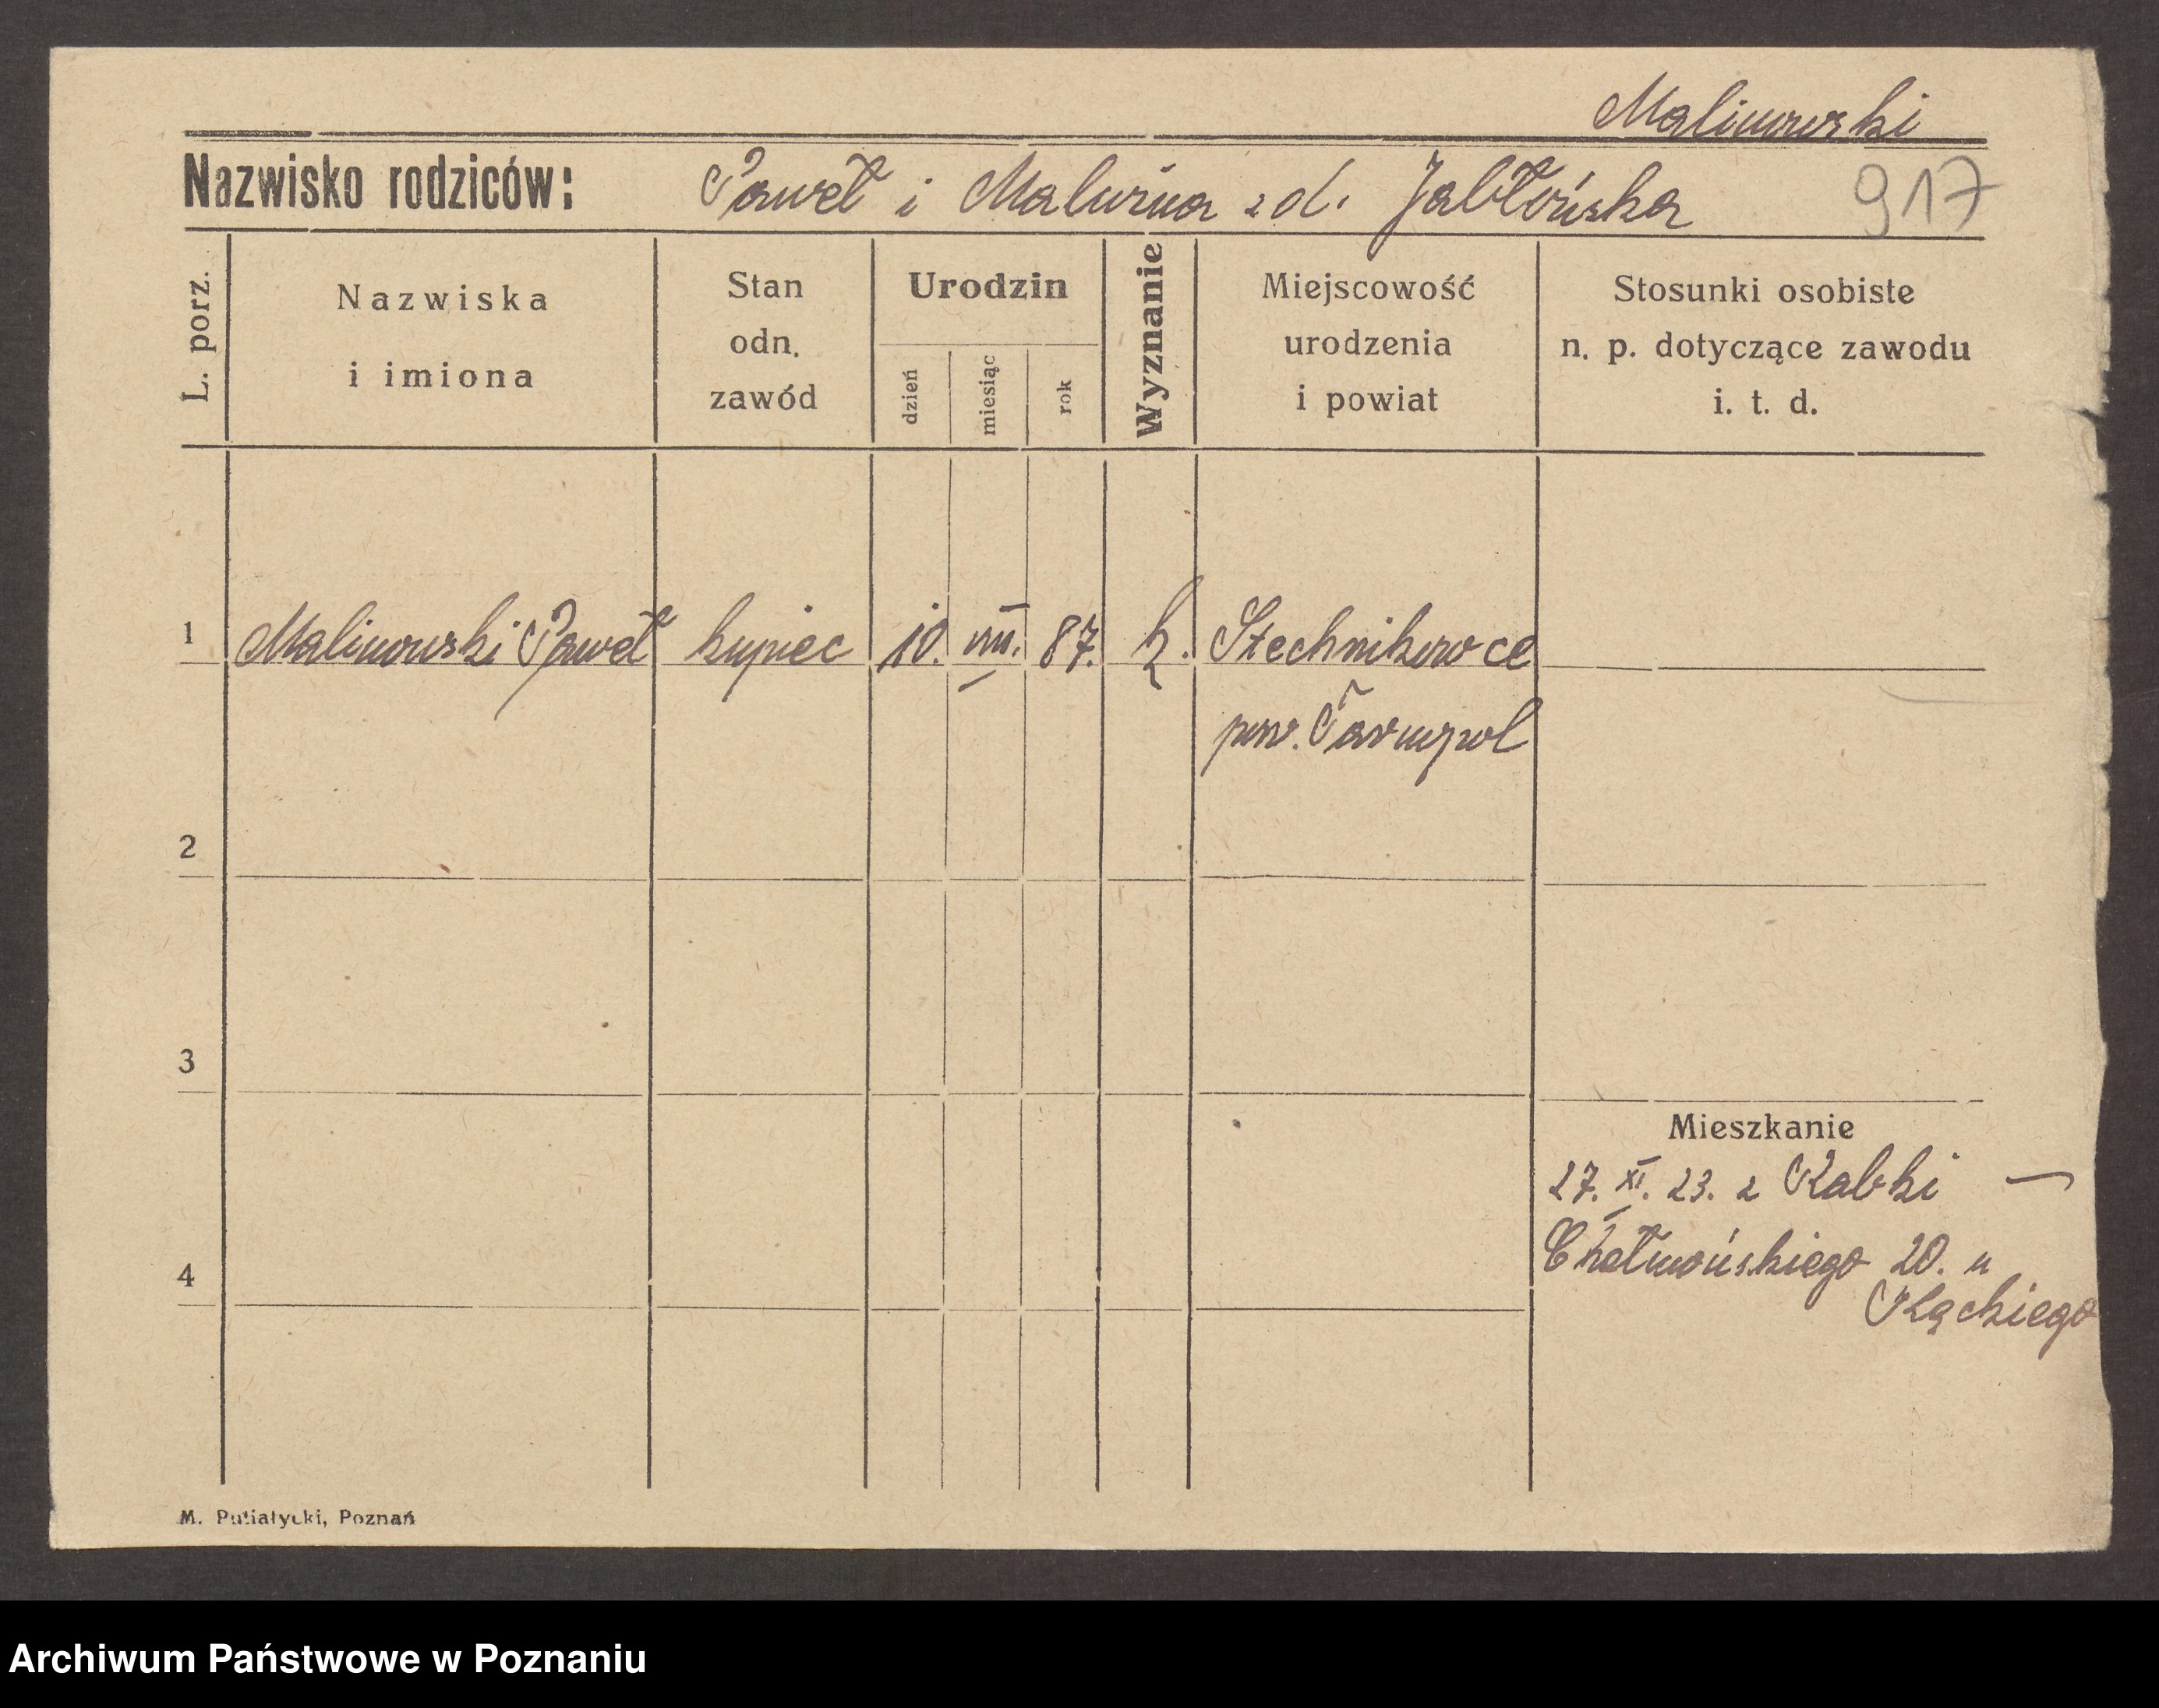 Malinowski
Nazwisko rodziców: Paweł i Malwina z d. Jabłońska 917
L. porz.
Nazwiska i imiona
Stan odn. zawód
Urodzin
dzień miesiąc rok
Wyznanie
Miejscowość urodzenia i powiat
Stosunki osobiste n. p. dotyczące zawodu i. t. d.
1 Malinowski Paweł kupiec 10. VIII. 87. k. Stechnikowce
pow. Tarnopol
2
3
Mieszkanie
27. XI. 23. z Rabki —
Chełmońskiego 20. u
4
M. Putiatycki, Poznań
Archiwum Państwowe w Poznaniu